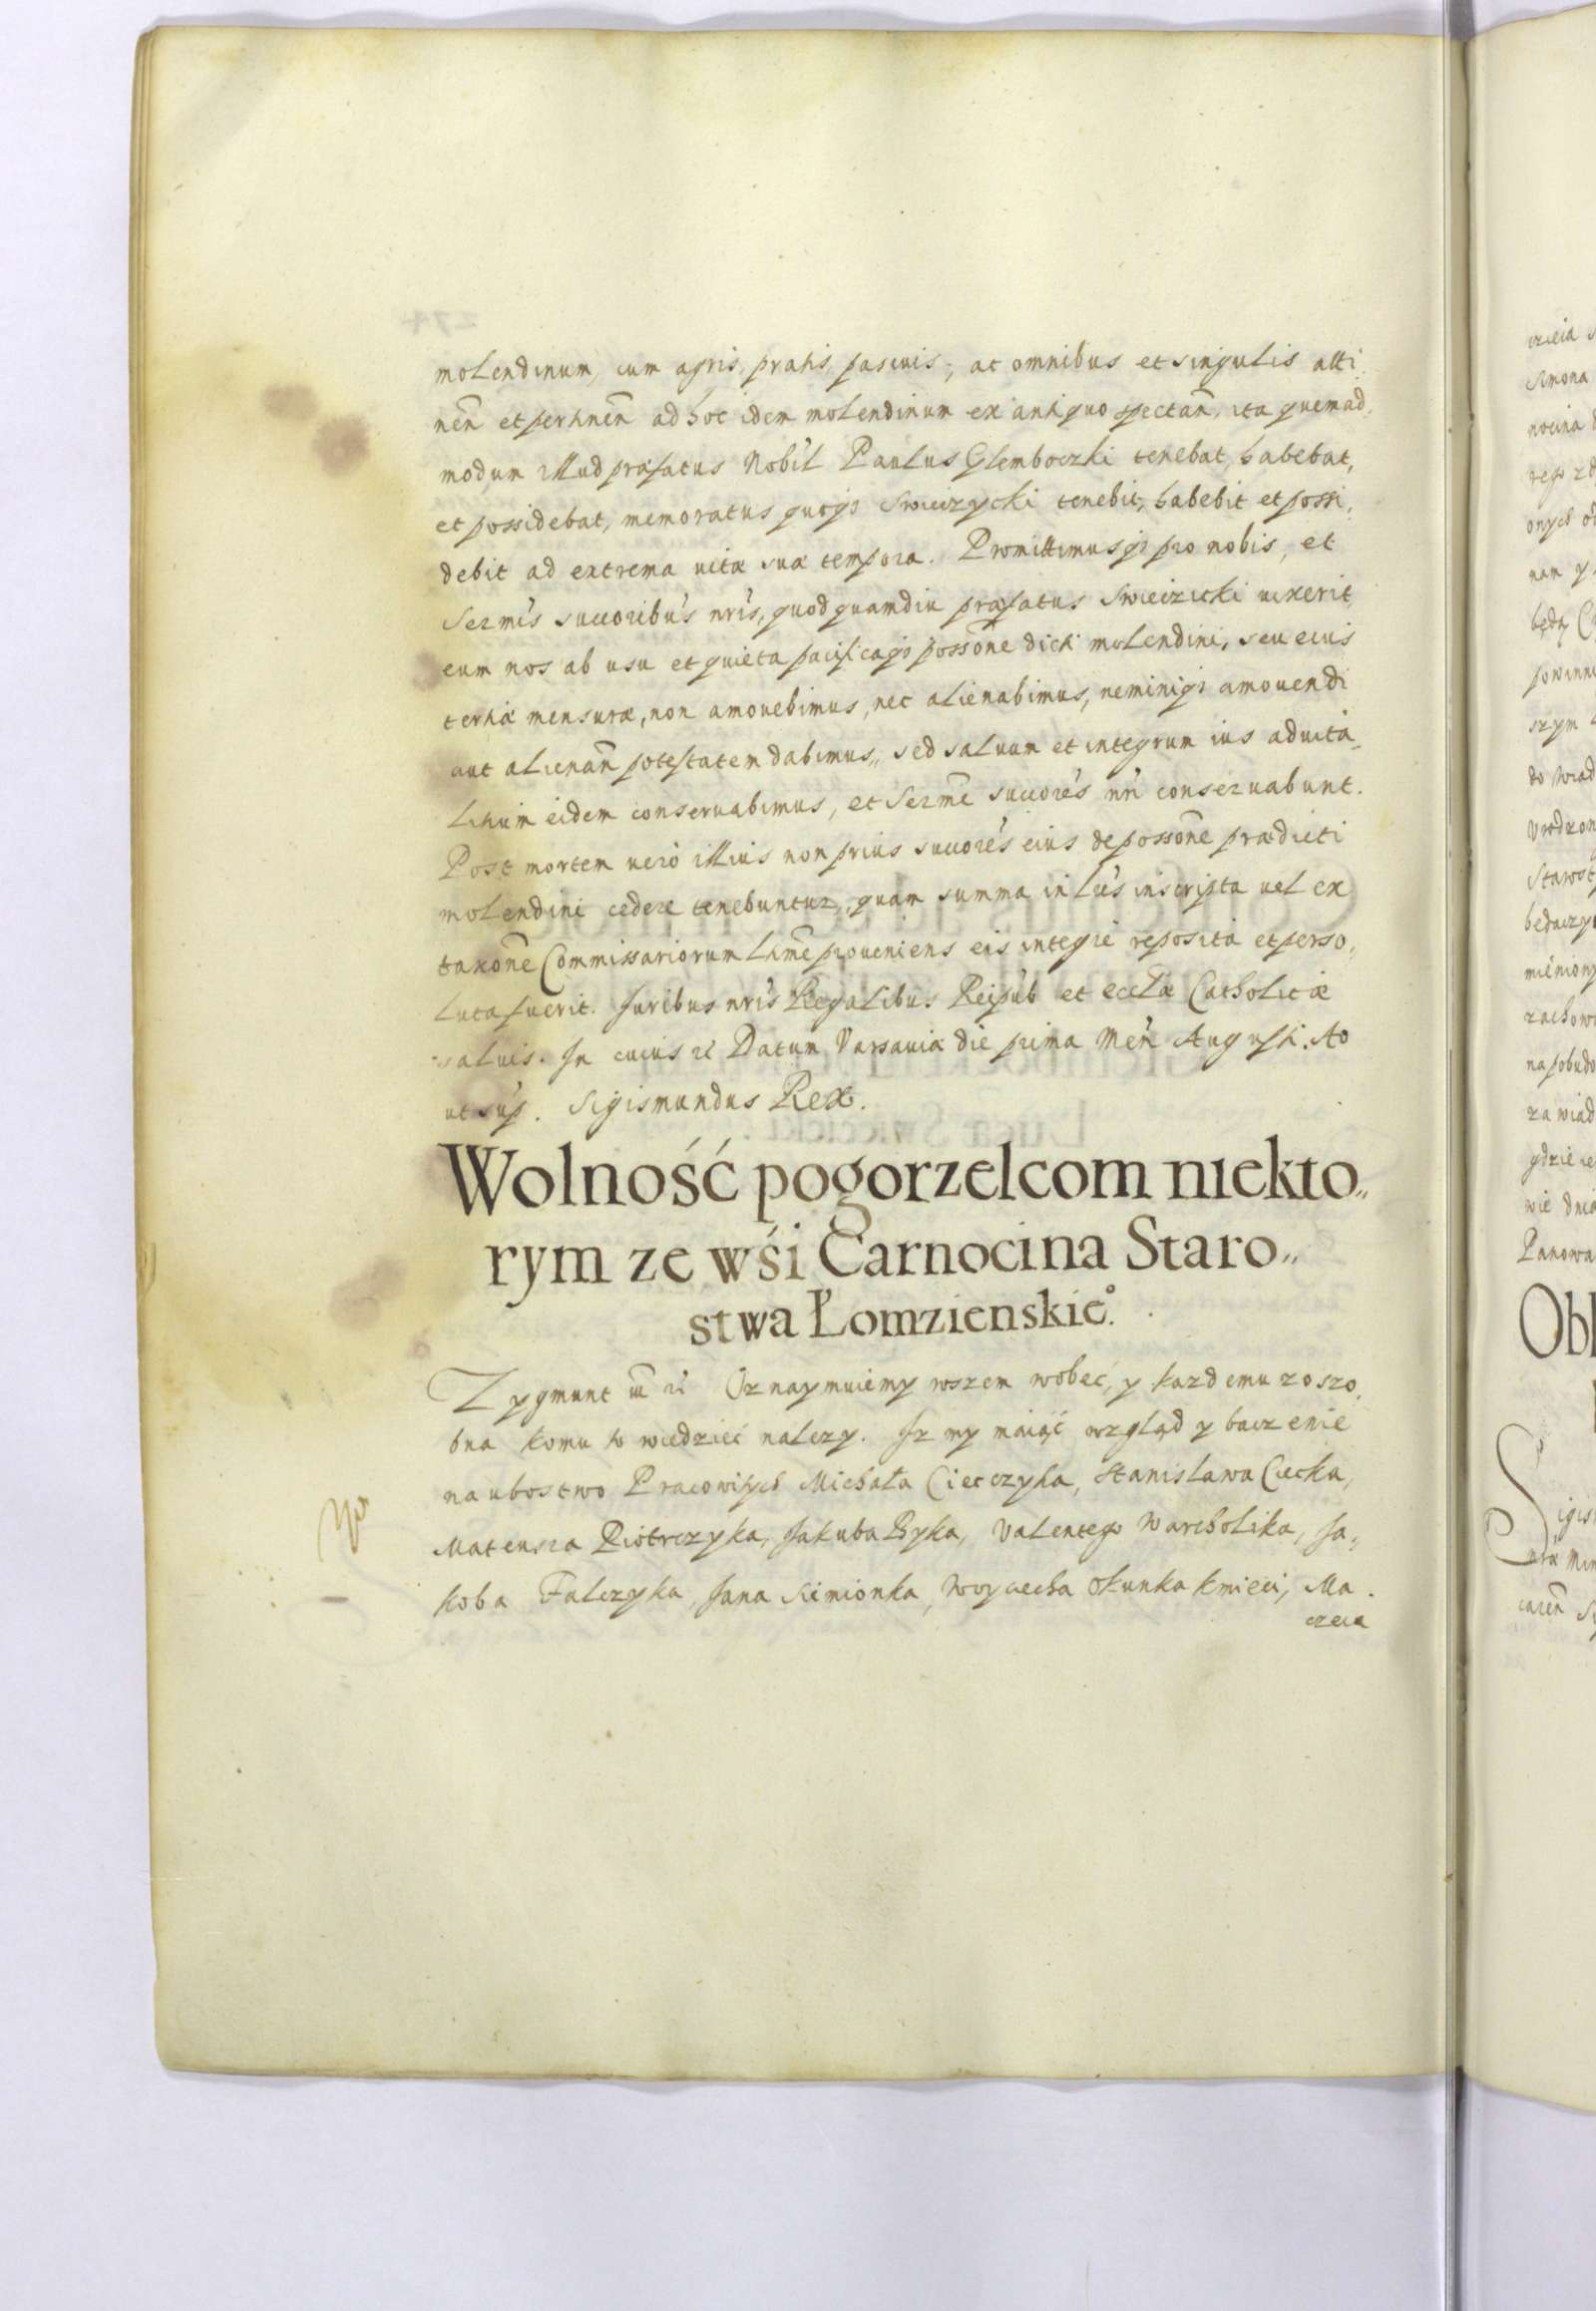 molendinum, cum agris, pratis, pascuis, ac omnibus et singulis atti„
neñ et pertineñ ad hoc idem molendinum ex antiquo spectañ, ita quemad„
modum illud præfatus Nobil Paulus Glemboczki tenebat, habebat,
et possidebat, memoratus quoqз Swieczycki tenebit, habebit et possi„
debit ad extrema uitæ suæ tempora. Promittimusqз pro nobis, et
Sermis succoribus nris, quod quamdiu præfatus Swieizicki uixerit
eum nos ab usu et quieta pacificaqз possone dicti molendini, seu eius
tertiæ mensuræ, non amouebimus, nec alienabimus, neminiqз amouendi
aut alienañ potestatem dabimus, sed saluum et integrum ius aduita„
litium eidem conseruabimus, et Serme succores nri conseruabunt.
Post mortem uero illius non prius succores eius de possone prædicti
molendini cedere tenebuntur, quam summa in lris inscripta uel ex
taxone Commissariorum ltime proueniens eis integre reposita et perso„
luta fuerit. Juribus nris Regalibus Reipub et ecclæ Catholicæ
saluis. In cuius rei Datum Varsauiæ die prima Men Augusti. Ao
ut sup. Sigismundus Rex.
Wolność pogorzelcom niekto„
rym ze wśi Carnocina Staro„
stwa Łomzienskie°.
Zygmunt III rc Oznaymuiemy wszem wobec, y kazdemu zoszo„
bna komu to wiedzieć nalezy. Iz my maiąc wzgląd y baczenie
na ubostwo Pracowitych Michała Ciecczyka, Stanisława Ciecka,
Mateusza Piotrczyka, Jakuba Byka, Valentego Warcholika, Ja„
koba Falczyka, Jana Simionka, Woyciecha Okunka kmieci, Ma„
czeia